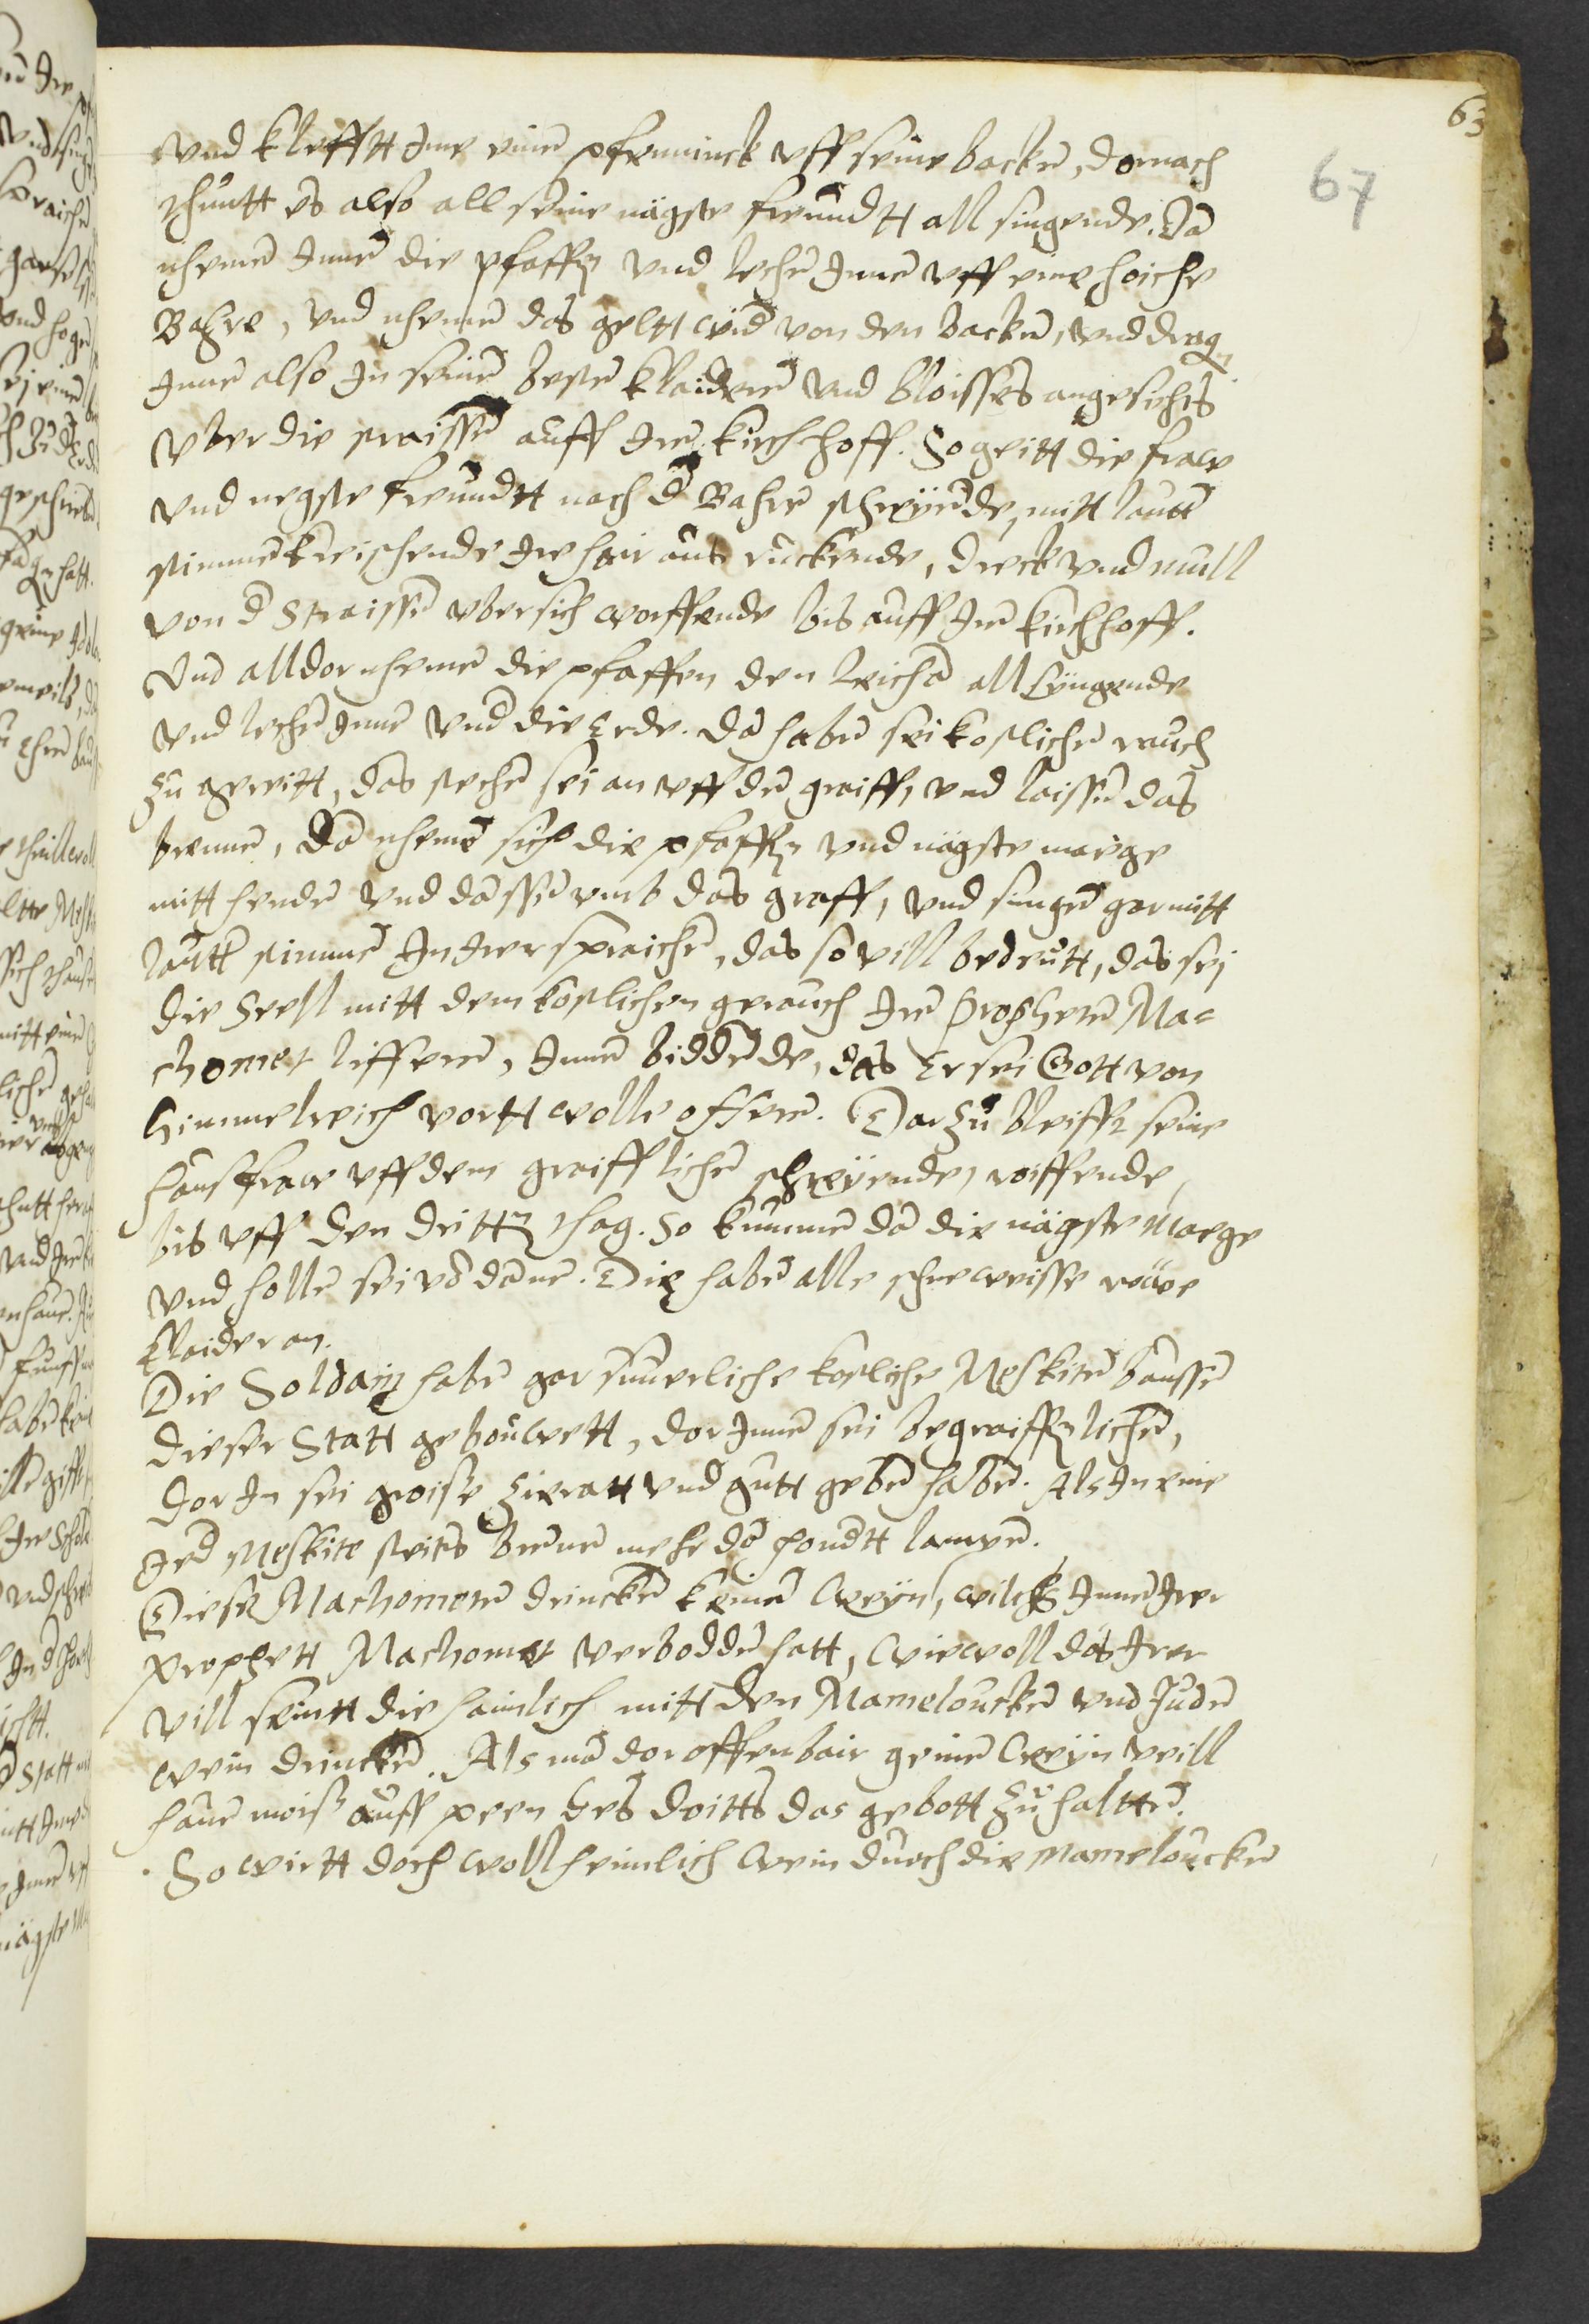 63
67
vnd klefftt Ime einen pfenninck vff seine backen, dornach
thuntt es also all seine nägste freundtt all singende. Dan
nhemen Innen die pfaffen vnd lechen Innen vff eine hoiche
Bahre, vnd nhemen das geltt wid von den backen, vnd dragen
Innen also In seinen besten klaideren vnd bloisses angesichts
vber die straissen auff Iren kirchhoff. So geitt die fraw
vnd negste freundtt nach d Bahren schreyende, mitt lautt
stimmen kreischende Ire hair aus ruckende, dreck vnd mull
von d Straissen vber sich worffende bis auff Iren kirchhoff.
Vnd alldor nhemen die pfaffen den leichen all syngende
vnd lechen Innen vnd die Erde. Dan haben sei kostlichen rauch
zu gereitt, das stechen sei an vff den graiff, vnd laissen das
brennen, Dan nhemen sich die pfaffen vnd nägste maege
mitt henden vnd danssen vmb das graff, vnd singen gar mitt
lautt stimmen In Irer spraichen, das so vill bedeutt, das sei
die Seell mitt dem kostlichen gerauch Iren Propheten Ma=
chomet lifferen, Innen biddende, das Er sei Gott von
himmelreich vortt wolle offeren. Dar zu bleifft seine
hausfraw vff dem graiff lichen schreyende, roiffende,
bis vff den dritten thag. So kummen dan die nägste Maege
vnd hollen sei vo dannen. Die haben alle schne weisse
klaider an.
Die Soldain haben gar suuerliche kostliche Meskiten baussen
dieser Statt gebouwett, dor Innen sei begraiffen lichen,
dor In sei groisse Zieratt vnd gutt geben haben. Als In eine
Jed Meskite steits brennen mehr dan hondtt lampen.
Diese Machometen drincken keinen Weyn, wilchs Innen Irer
Prophett Machomet verbodden hatt, Wiewoll das Irer
vill seintt die haimlich mitt den Mameloucken vnd Juden
wein drincken. Als man dor offenbair geinen Weyn veill
hauen mois auff peen des doitts das gebott zu haltten.
So wirtt doch woll heimlich Wein durch die Mameloucken